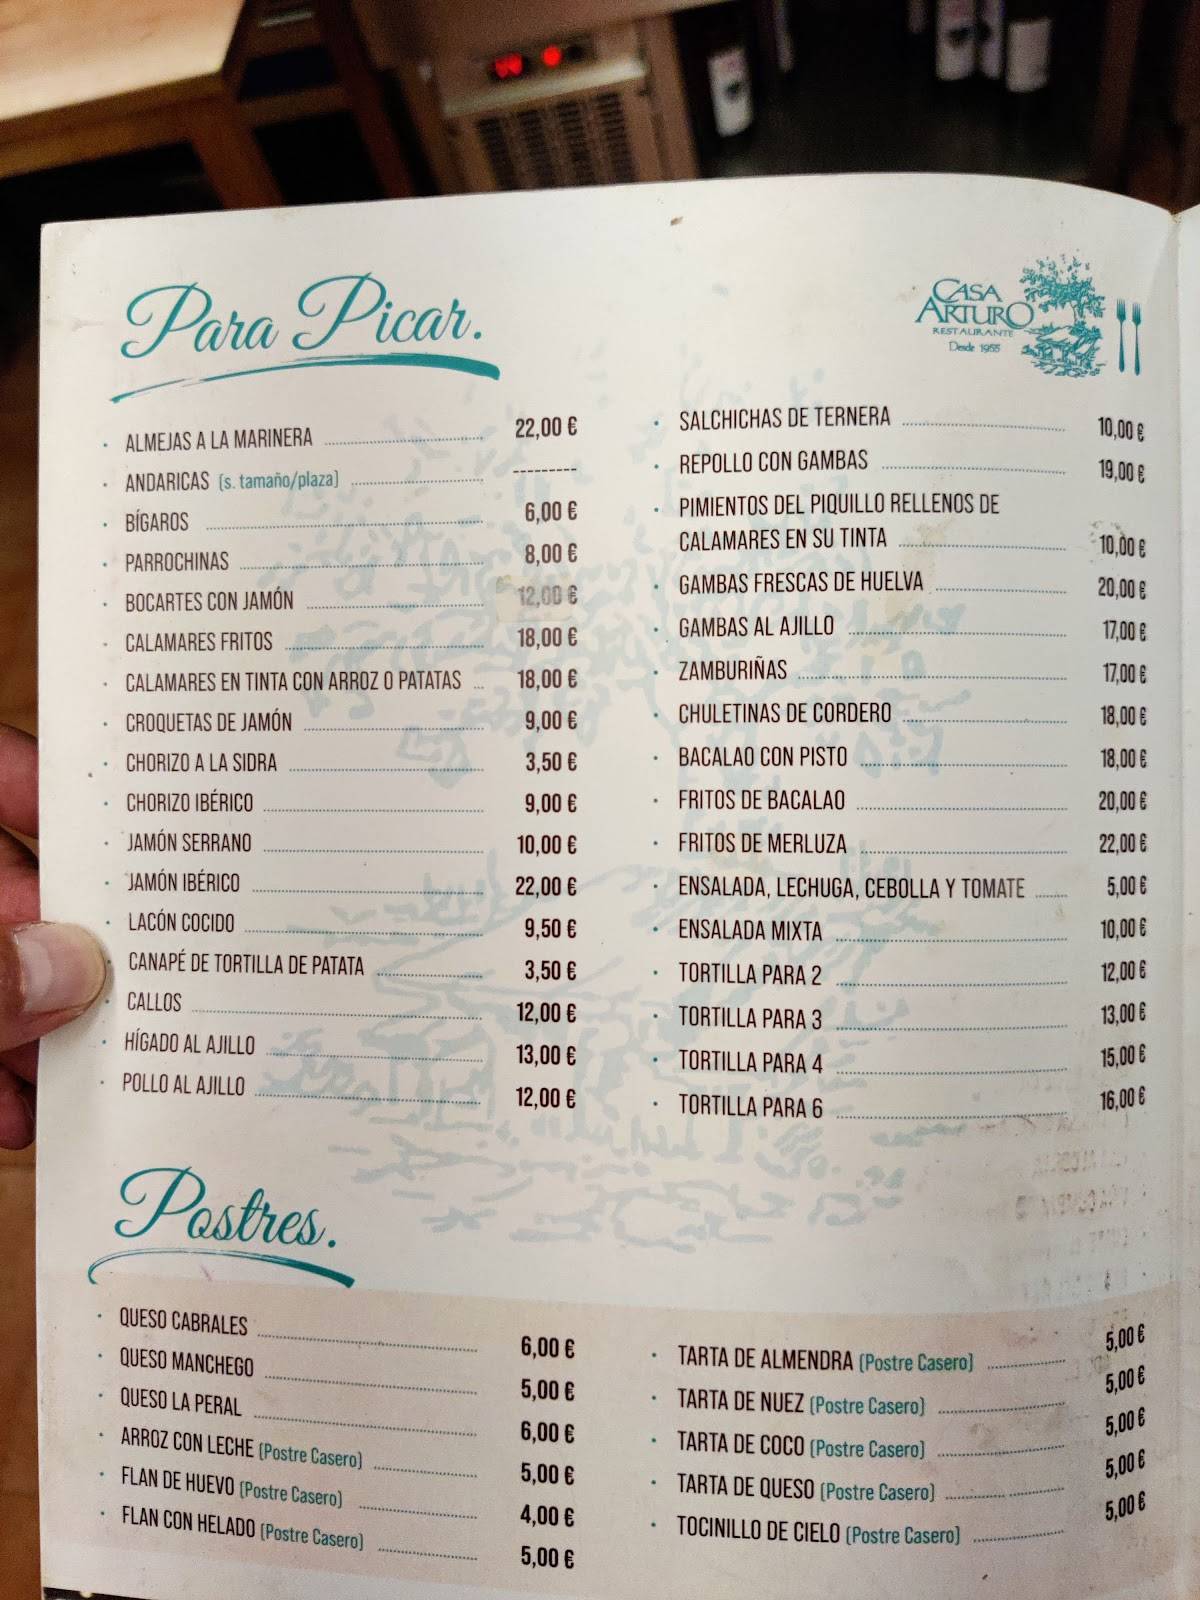 Para Picar.
CASA
ARTURO
RESTAURANTE
Desde 1955
ALMEJAS A LA MARINERA 22,00 €
ANDARICAS (s. tamaño/plaza) ---------
BÍGAROS 6,00 €
PARROCHINAS 8,00 €
BOCARTES CON JAMÓN 12,00 €
CALAMARES FRITOS 18,00 €
CALAMARES EN TINTA CON ARROZ O PATATAS 18,00 €
CROQUETAS DE JAMÓN 9,00 €
CHORIZO A LA SIDRA 3,50 €
CHORIZO IBÉRICO 9,00 €
JAMÓN SERRANO 10,00 €
JAMÓN IBÉRICO 22,00 €
LACÓN COCIDO 9,50 €
CANAPÉ DE TORTILLA DE PATATA 3,50 €
CALLOS 12,00 €
HÍGADO AL AJILLO 13,00 €
POLLO AL AJILLO 12,00 €
SALCHICHAS DE TERNERA 10,00 €
REPOLLO CON GAMBAS 19,00 €
PIMIENTOS DEL PIQUILLO RELLENOS DE
CALAMARES EN SU TINTA 10,00 €
GAMBAS FRESCAS DE HUELVA 20,00 €
GAMBAS AL AJILLO 17,00 €
ZAMBURIÑAS 17,00 €
CHULETINAS DE CORDERO 18,00 €
BACALAO CON PISTO 18,00 €
FRITOS DE BACALAO 20,00 €
FRITOS DE MERLUZA 22,00 €
ENSALADA, LECHUGA, CEBOLLA Y TOMATE 5,00 €
ENSALADA MIXTA 10,00 €
TORTILLA PARA 2 12,00 €
TORTILLA PARA 3 13,00 €
TORTILLA PARA 4 15,00 €
TORTILLA PARA 6 16,00 €
Postres.
QUESO CABRALES 6,00 €
QUESO MANCHEGO 5,00 €
QUESO LA PERAL 6,00 €
ARROZ CON LECHE (Postre Casero) 5,00 €
FLAN DE HUEVO (Postre Casero) 4,00 €
FLAN CON HELADO (Postre Casero) 5,00 €
TARTA DE ALMENDRA (Postre Casero) 5,00 €
TARTA DE NUEZ (Postre Casero) 5,00 €
TARTA DE COCO (Postre Casero) 5,00 €
TARTA DE QUESO (Postre Casero) 5,00 €
TOCINILLO DE CIELO (Postre Casero) 5,00 €